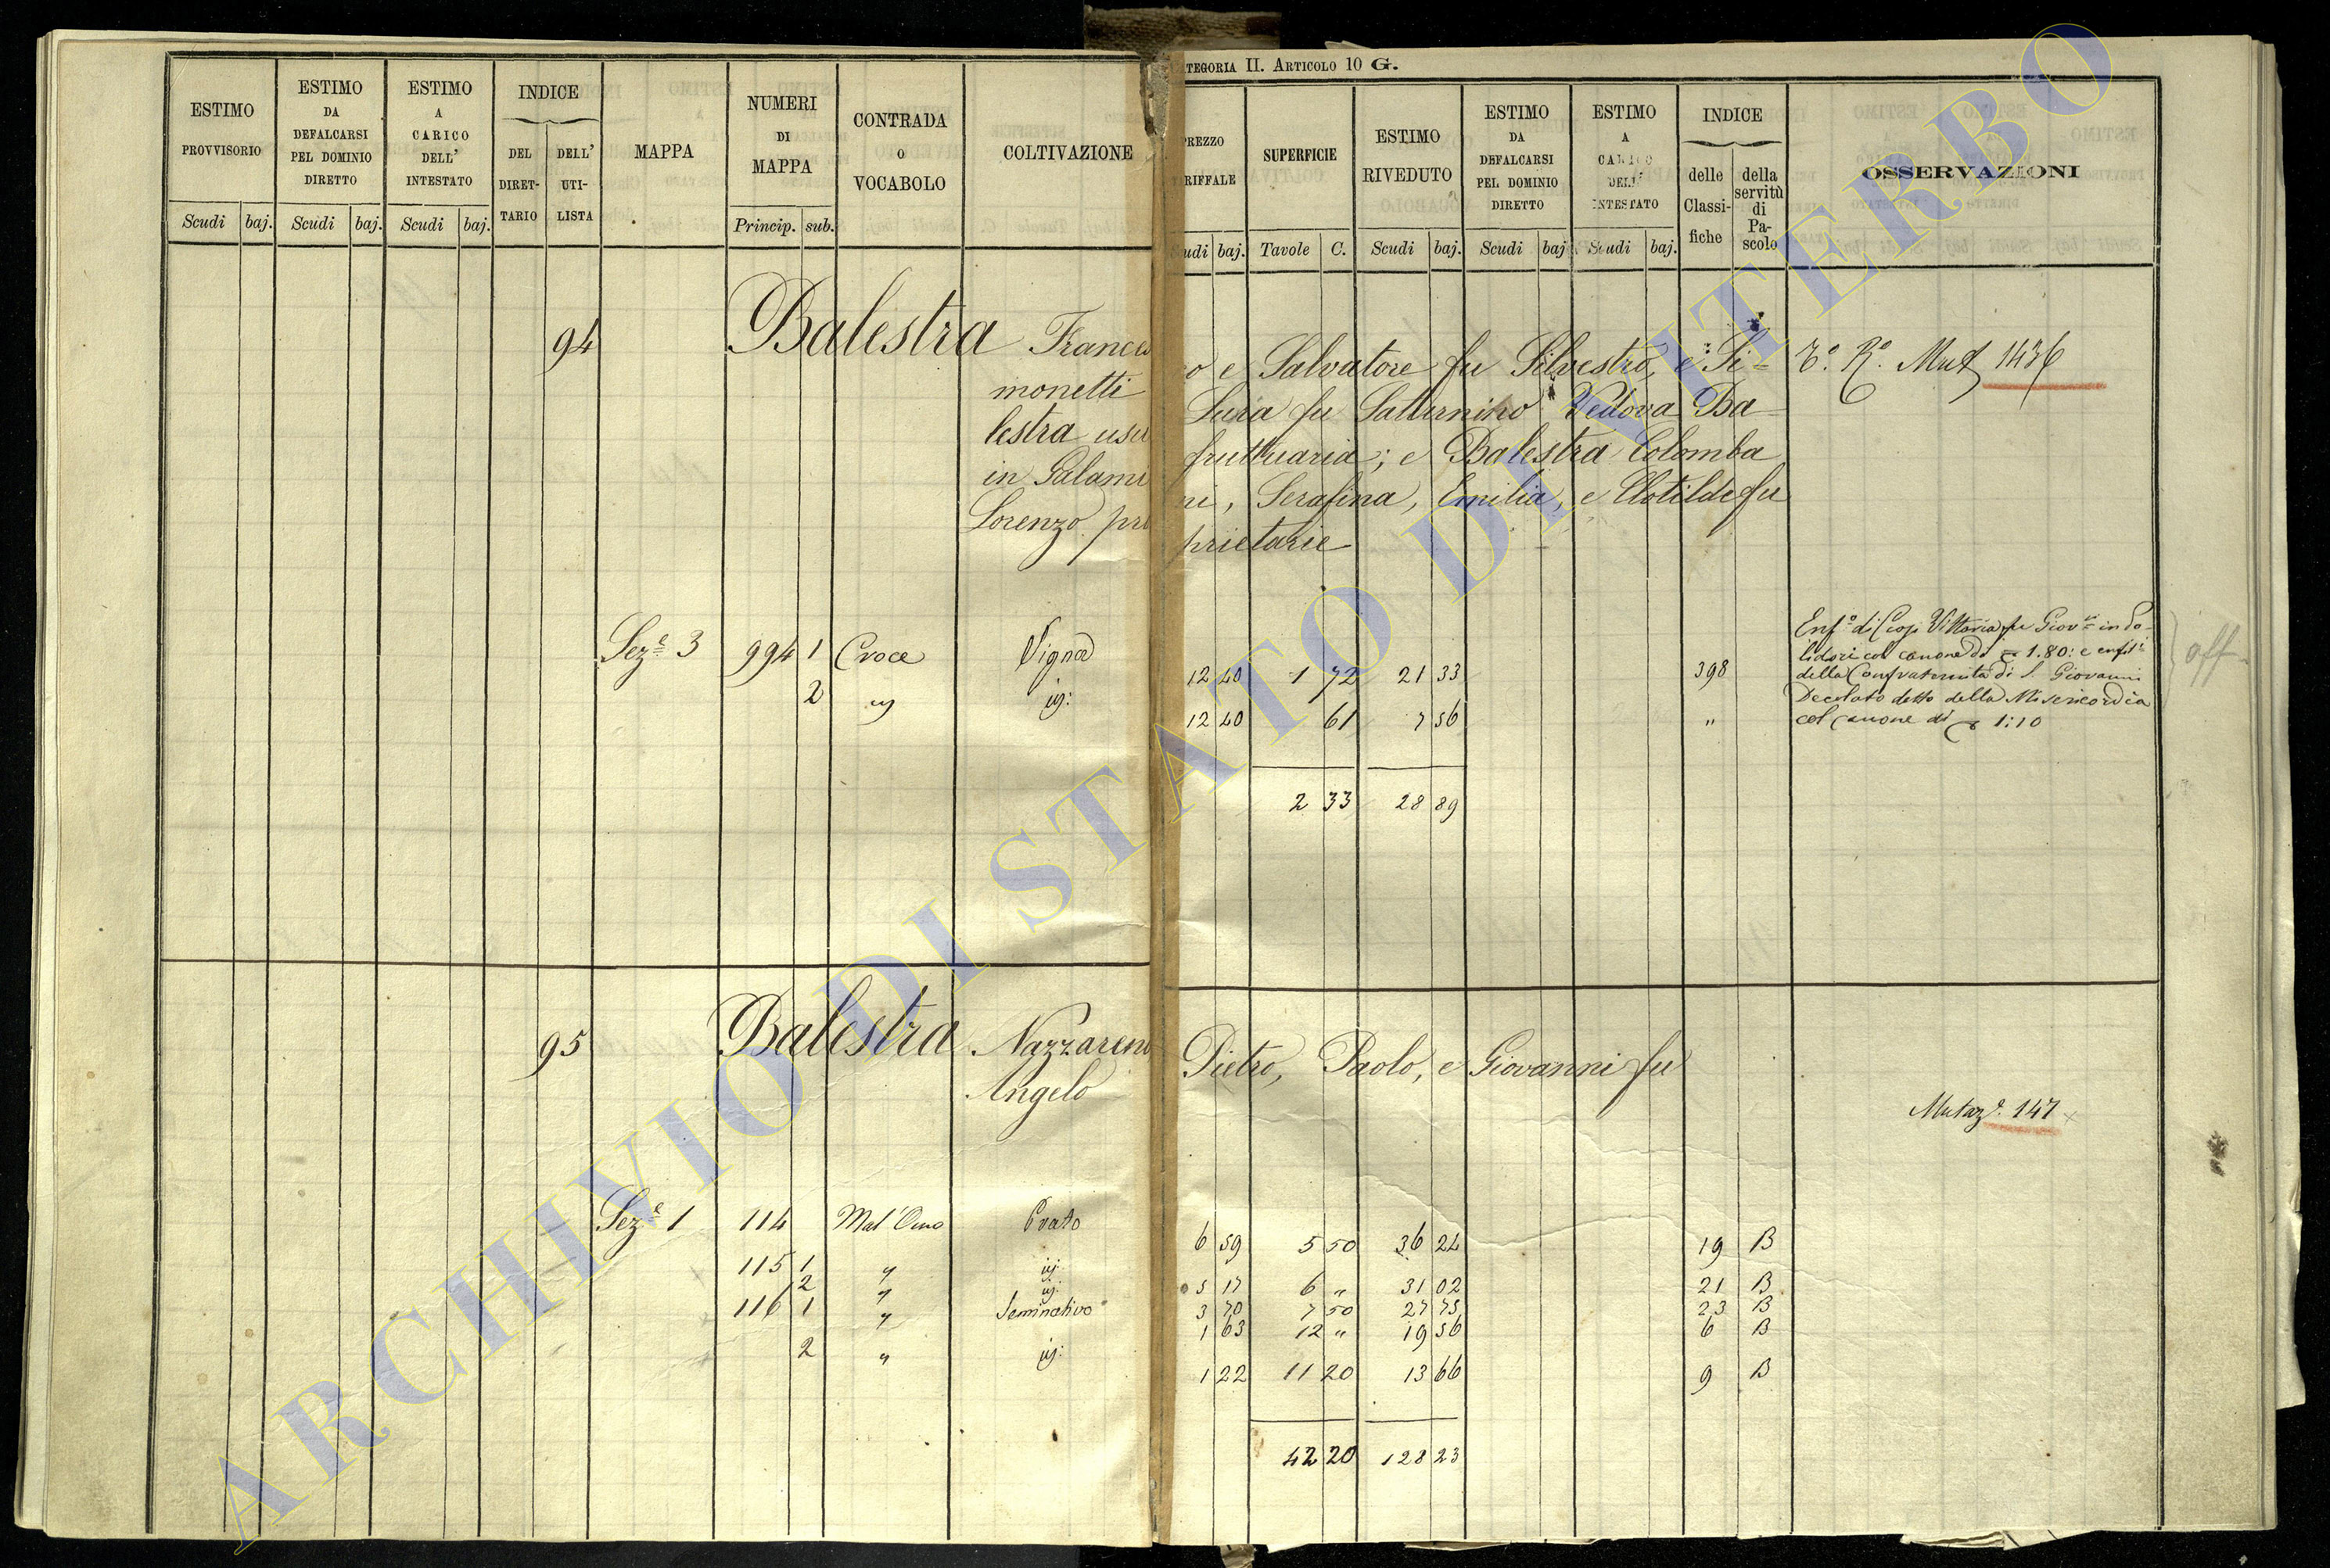 ATEGORIA II. ARTICOLO 10 G.
ESTIMO PROVVISORIO
Scudi baj.
ESTIMO DA DEFALCARSI PEL DOMINIO DIRETTO
Scudi baj.
ESTIMO A CARICO DELL' INTESTATO
Scudi baj.
INDICE
DEL DIRET-TARIO
DELL' UTI-LISTA
MAPPA
NUMERI DI MAPPA
Princip. sub.
CONTRADA O VOCABOLO
COLTIVAZIONE
PREZZO TARIFFALE
Scudi baj.
SUPERFICIE
Tavole C.
ESTIMO RIVEDUTO
Scudi baj.
ESTIMO DA DEFALCARSI PEL DOMINIO DIRETTO
Scudi baj.
ESTIMO A CARICO DELL' INTESTATO
Scudi baj.
INDICE
delle Classi-fiche
della servitù di Pa-scolo
OSSERVAZIONI
94 Balestra Francesco e Salvatore fu Silvestro, e Si=
monetti Luria fu Saturnino Vedova Ba-
lestra usufruttuaria; e Balestra Colomba
in Palamini, Serafina, Emilia, e Clotilde fu
Lorenzo proprietarie
Mut 1436
Sez.e 3 994 1 Croce Vigna 12 40 1 72 21 33 398
2 " id: 12 40 61 7 56 "
2 33 28 89
Vittoria fu Giov.
col canone di 1.80: e
della Confraternita di S. Giovanni
Decollato detto della Misericordia
col canone di 1:10
off
95 Balestra Nazzareno Pietro, Paolo, e Giovanni fu
Angelo
Mutaz.e 147
Sez.e 1 114 Mal'Omo Prato 6 59 5 50 36 24 19 B
115 1 " id: 5 17 6 " 31 02 21 B
2 " id: 3 70 7 50 27 75 23 B
116 1 " Seminativo 1 63 12 " 19 56 6 B
2 " id: 1 22 11 20 13 66 9 B
42 20 128 23
ARCHIVIO DI STATO DI VITERBO